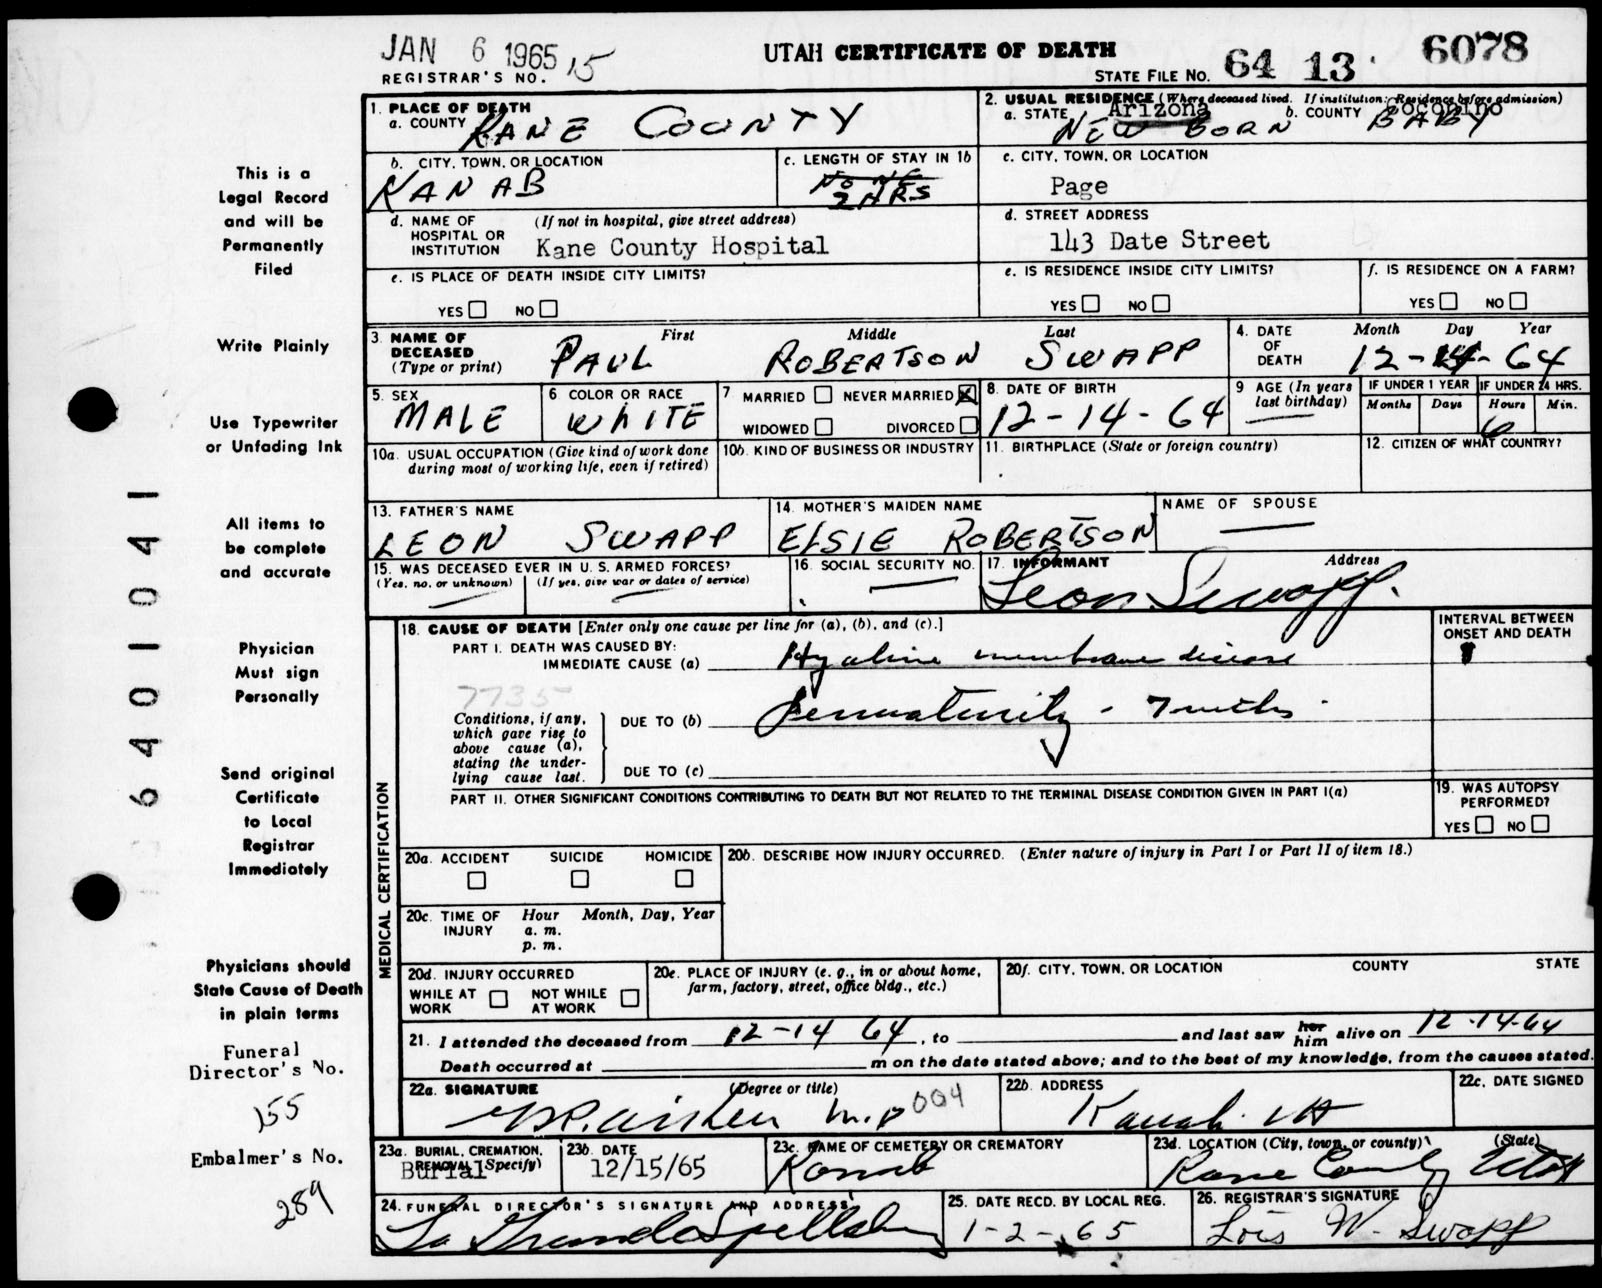 JAN 6 1965 15
REGISTRAR'S NO.
UTAH CERTIFICATE OF DEATH
STATE FILE NO. 64 13 6078
1. PLACE OF DEATH
a. COUNTY KANE COUNTY
2. USUAL RESIDENCE (Where deceased lived. If institution: Residence before admission)
a. STATE Arizona b. COUNTY Coconino
NEW BORN BABY
b. CITY, TOWN, OR LOCATION
KANAB
c. LENGTH OF STAY IN 1b
NONE
2 HRS
c. CITY, TOWN, OR LOCATION
Page
d. NAME OF HOSPITAL OR INSTITUTION (If not in hospital, give street address)
Kane County Hospital
d. STREET ADDRESS
143 Date Street
e. IS PLACE OF DEATH INSIDE CITY LIMITS?
YES NO
e. IS RESIDENCE INSIDE CITY LIMITS?
YES NO
f. IS RESIDENCE ON A FARM?
YES NO
3. NAME OF DECEASED (Type or print)
First Middle Last
PAUL ROBERTSON SWAPP
4. DATE OF DEATH
Month Day Year
12-14-64
5. SEX
MALE
6 COLOR OR RACE
WHITE
7 MARRIED NEVER MARRIED
WIDOWED DIVORCED
8. DATE OF BIRTH
12-14-64
9 AGE (In years last birthday)
IF UNDER 1 YEAR
Months Days
IF UNDER 24 HRS.
Hours Min.
6
10a. USUAL OCCUPATION (Give kind of work done during most of working life, even if retired)
10b. KIND OF BUSINESS OR INDUSTRY
11. BIRTHPLACE (State or foreign country)
12. CITIZEN OF WHAT COUNTRY?
13. FATHER'S NAME
LEON SWAPP
14. MOTHER'S MAIDEN NAME
ELSIE ROBERTSON
NAME OF SPOUSE
15. WAS DECEASED EVER IN U.S. ARMED FORCES?
(Yes, no, or unknown) (If yes, give war or dates of service)
16. SOCIAL SECURITY NO.
17. INFORMANT Address
Leon Swapp.
MEDICAL CERTIFICATION
18. CAUSE OF DEATH [Enter only one cause per line for (a), (b), and (c).]
PART I. DEATH WAS CAUSED BY:
IMMEDIATE CAUSE (a) Hyaline membrane disease
INTERVAL BETWEEN ONSET AND DEATH
7735
Conditions, if any, which gave rise to above cause (a), stating the underlying cause last.
DUE TO (b) Prematurity - 7 mths
DUE TO (c)
PART II. OTHER SIGNIFICANT CONDITIONS CONTRIBUTING TO DEATH BUT NOT RELATED TO THE TERMINAL DISEASE CONDITION GIVEN IN PART I(a)
19. WAS AUTOPSY PERFORMED?
YES NO
20a. ACCIDENT SUICIDE HOMICIDE
20b. DESCRIBE HOW INJURY OCCURRED. (Enter nature of injury in Part I or Part II of item 18.)
20c. TIME OF INJURY Hour Month, Day, Year
a. m.
p. m.
20d. INJURY OCCURRED
WHILE AT WORK NOT WHILE AT WORK
20e. PLACE OF INJURY (e. g., in or about home, farm, factory, street, office bldg., etc.)
20f. CITY, TOWN, OR LOCATION COUNTY STATE
21. I attended the deceased from 12-14 64, to and last saw her him alive on 12-14-64
Death occurred at m on the date stated above; and to the best of my knowledge, from the causes stated.
22a. SIGNATURE (Degree or title)
Aiken M.D 004
22b. ADDRESS
Kanab. Ut
22c. DATE SIGNED
23a. BURIAL, CREMATION, REMOVAL (Specify)
Burial
23b. DATE
12/15/65
23c. NAME OF CEMETERY OR CREMATORY
Kanab
23d. LOCATION (City, town, or county) (State)
Kane County Utah
24. FUNERAL DIRECTOR'S SIGNATURE AND ADDRESS
25. DATE RECD. BY LOCAL REG.
1-2-65
26. REGISTRAR'S SIGNATURE
Lois W. Swapp
This is a
Legal Record
and will be
Permanently
Filed
Write Plainly
Use Typewriter
or Unfading Ink
All items to
be complete
and accurate
Physician
Must sign
Personally
Send original
Certificate
to Local
Registrar
Immediately
Physicians should
State Cause of Death
in plain terms
Funeral
Director's No.
155
Embalmer's No.
289
6401041